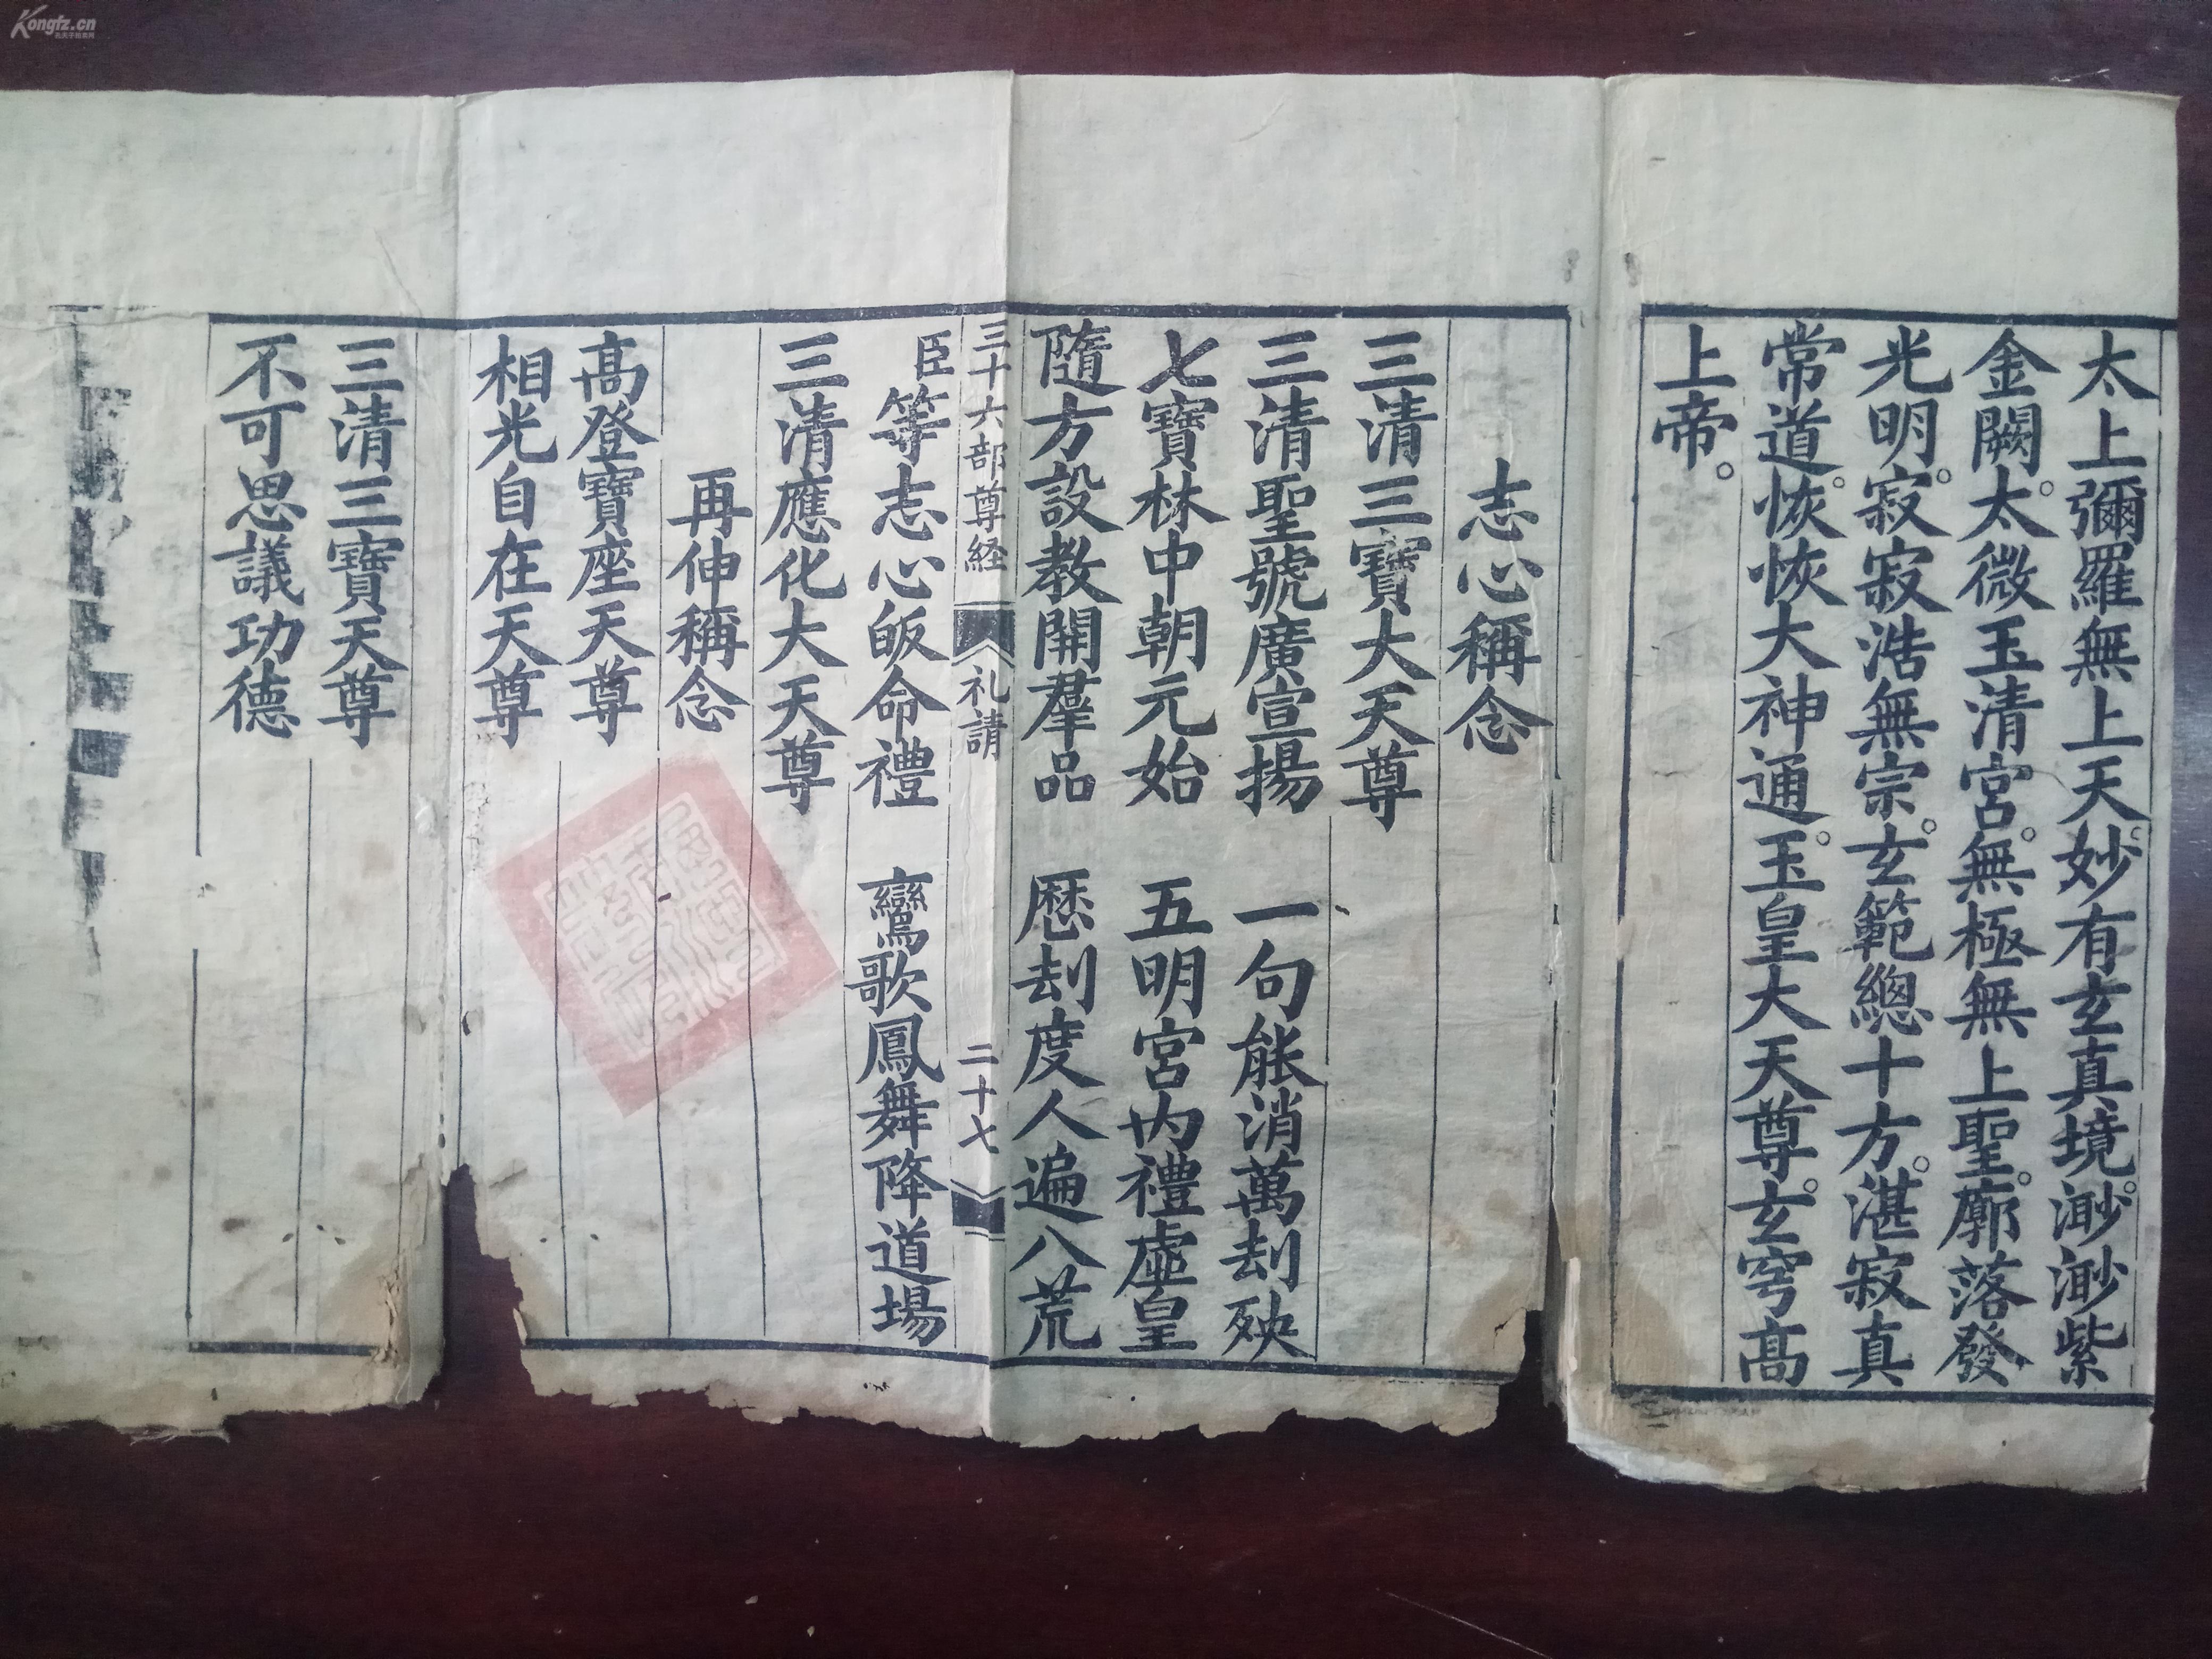 太上彌羅無上天。妙有玄真境。渺渺紫
金闕。太微玉清宮。無極無上聖。廓落發
光明。寂寂浩無宗。玄範總十方。湛寂真
常道。恢恢大神通。玉皇大天尊。玄穹高
上帝。
志心稱念
三清三寶大天尊
三清聖號廣宣揚 一句能消萬刦殃
七寶林中朝元始 五明宮內禮虛皇
隨方設教開羣品 歷刦度人遍八荒
三十六部尊経 礼請 二十七
臣等志心皈命禮 鸞歌鳳舞降道場
三清應化大天尊
再伸稱念
高登寶座天尊
相光自在天尊
三清三寶天尊
不可思議功德
Kongfz.cn